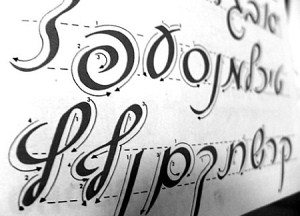 אבג
טיכלמנסעפצ
קרשתךםןףץ